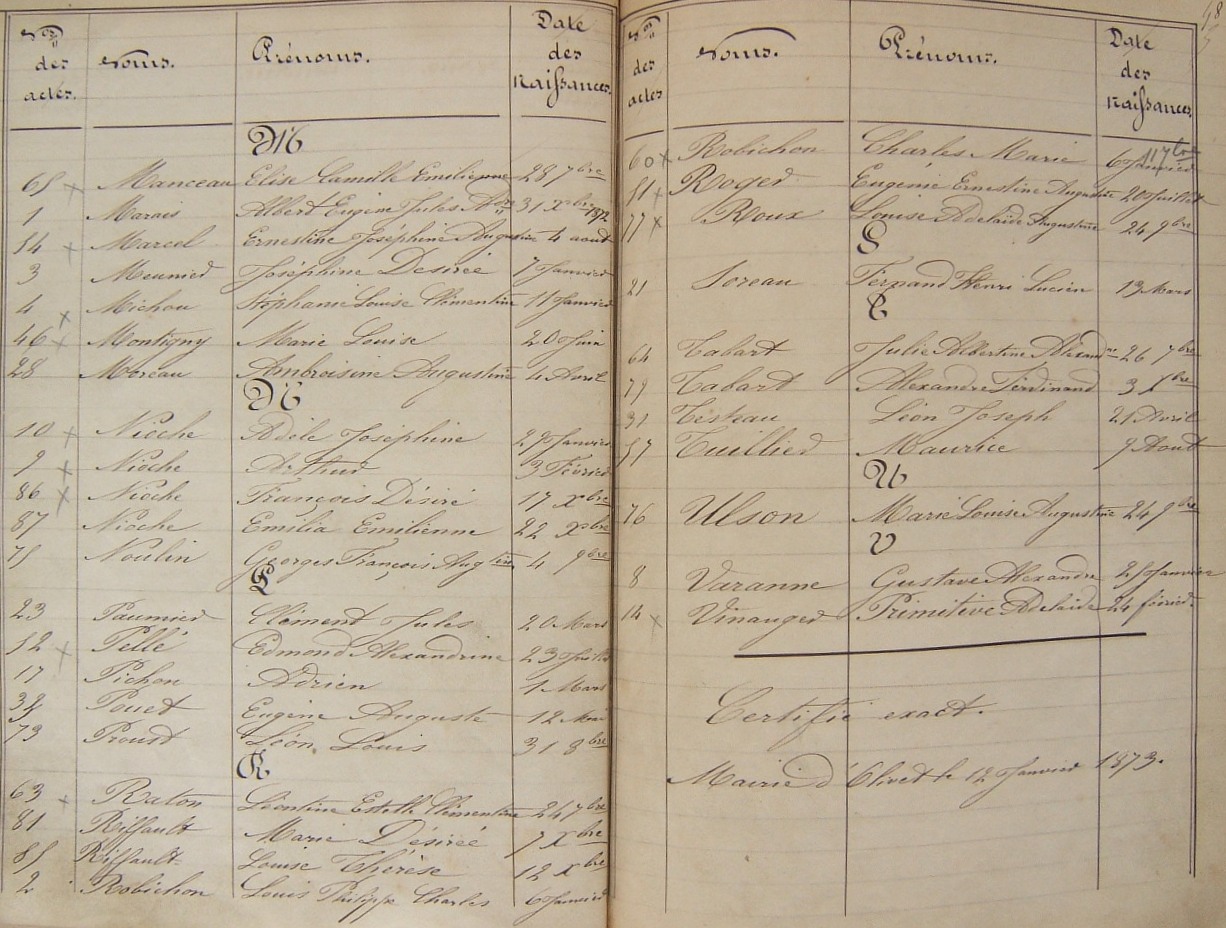 Nos des actes. Noms. Prénoms. Date des naissances.
M
65 Manceau Elise Camille Emilienne 28 7bre
1 Marais Albert Eugène Jules 31 Xbre 1872
54 Marcel Ernestine Joséphine Augustine 4 aout
3 Meunier Joséphine Desirée 7 Janvier
4 Michou Stéphanie Louise Clémentine 11 Janvier
46 Montigny Marie Louise 20 Juin
28 Moreau Ambroisine Augustine 4 Avril
N
10 Nioche Adèle Joséphine 29 Janvier
9 Nioche Arthur 3 Février
86 Nioche François Désiré 17 Xbre
87 Nioche Emilia Emilienne 22 Xbre
75 Noulin Georges François Augtin 4 9bre
P
23 Paumier Clément Jules 20 Mars
52 Pellé Edmond Alexandrine 23 Juillet
17 Pichon Adrien 1 Mars
Pouet Eugène Auguste 12 Mai
73 Proust Léon Louis 31 8bre
R
63 Raton Léontine Estelle Clémentine 24 7bre
81 Riffault Marie Désirée 7 Xbre
85 Riffault Louise Thérèse 12 Xbre
2 Robichon Louis Philippe Charles 6 Janvier
Nos des actes Noms. Prénoms. Date des naissances.
60 Robichon Charles Marie 7bre
51 Roger Eugénie Ernestine Augustine 20 Juillet
77 Roux Louise Adelaïde Augustine 24 9bre
S
21 Soreau Fernand Henri Lucien 13 Mars
T
64 Tabart Julie Albertine Alexandne 26 7bre
79 Tabart Alexandre Ferdinand 3 Xbre
31 Testeau Léon Joseph 21 Avril
57 Tuillier Maurice 9 Aout
U
76 Ulson Marie Louise Augustine 24 9bre
V
8 Varanne Gustave Alexandre 25 Janvier
14 Vinauger Primitive Adelaïde 24 février
Certifié exact.
Mairie d'Olivet le 12 Janvier 1873.